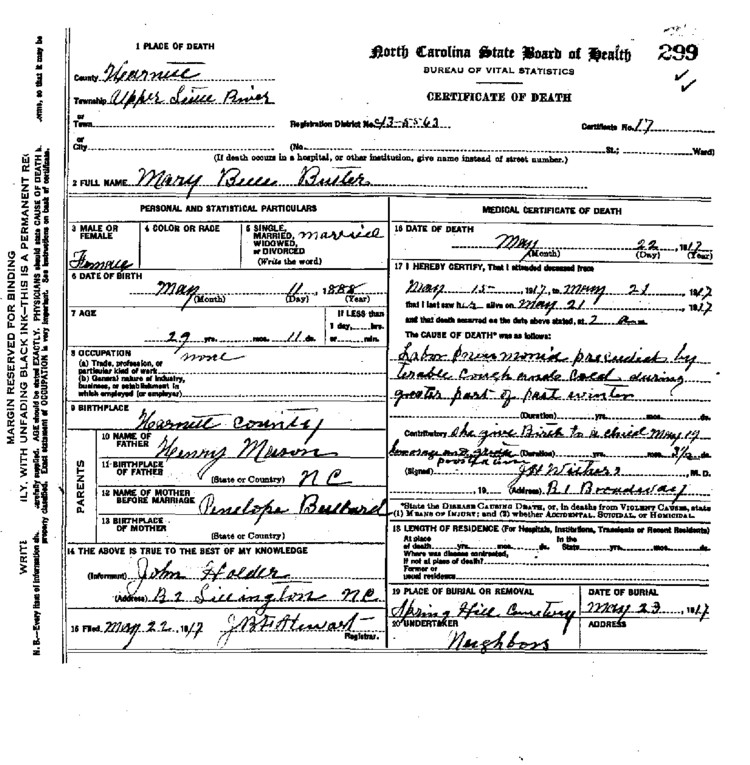 1 PLACE OF DEATH
North Carolina State Board of Health 299
BUREAU OF VITAL STATISTICS
CERTIFICATE OF DEATH
County Harnett
Township Upper Little River
or
Town
Registration District No. 43-5563 Certificate No. 17
or
City (No. St.; Ward)
(If death occurs in a hospital, or other institution, give name instead of street number.)
2 FULL NAME Mary Butler
PERSONAL AND STATISTICAL PARTICULARS
3 MALE OR FEMALE Female
4 COLOR OR RACE
5 SINGLE, MARRIED, WIDOWED, or DIVORCED (Write the word) married
6 DATE OF BIRTH
May 11, 1888
(Month) (Day) (Year)
7 AGE
29 yrs. mos. 11 ds.
If LESS than 1 day, hrs. or min.
8 OCCUPATION none
(a) Trade, profession, or particular kind of work
(b) General nature of industry, business, or establishment in which employed (or employer)
9 BIRTHPLACE
Harnett County
PARENTS
10 NAME OF FATHER Henry Mason
11 BIRTHPLACE OF FATHER (State or Country) N C
12 NAME OF MOTHER BEFORE MARRIAGE Penelope Bullard
13 BIRTHPLACE OF MOTHER (State or Country)
14 THE ABOVE IS TRUE TO THE BEST OF MY KNOWLEDGE
(Informant) John Holder
(Address) Lillington NC
15 Filed May 22, 1917 Registrar.
MEDICAL CERTIFICATE OF DEATH
16 DATE OF DEATH
May 22, 1917
(Month) (Day) (Year)
17 I HEREBY CERTIFY, That I attended deceased from
May 15, 1917, to May 21, 1917
that I last saw h alive on May 21, 1917
and that death occurred on the date above stated, at 2 a m.
The CAUSE OF DEATH* was as follows:
Lobar pneumonia preceded by
cough and cold during
greater part of past winter
(Duration) yrs. mos. ds.
Contributory She gave Birth to a child May 19
(Duration) yrs. mos. ds.
(Signed) M. D.
19 (Address) Broadway
*State the DISEASE CAUSING DEATH, or, in deaths from VIOLENT CAUSES, state
(1) MEANS OF INJURY; and (2) whether ACCIDENTAL, SUICIDAL, or HOMICIDAL.
18 LENGTH OF RESIDENCE (For Hospitals, Institutions, Transients or Recent Residents)
At place of death yrs. mos. ds. In the State yrs. mos. ds.
Where was disease contracted, if not at place of death?
Former or usual residence
19 PLACE OF BURIAL OR REMOVAL
Spring Hill Cemetery
DATE OF BURIAL
May 23, 1917
20 UNDERTAKER
Neighbors
ADDRESS
MARGIN RESERVED FOR BINDING
WRITE ILY, WITH UNFADING BLACK INK—THIS IS A PERMANENT REC
N. B.—Every item of information sh. carefully supplied. AGE should be stated EXACTLY. PHYSICIANS should state CAUSE OF DEATH i. terms, so that it may be
properly classified. Exact statement of OCCUPATION is very important. See instructions on back of certificate.